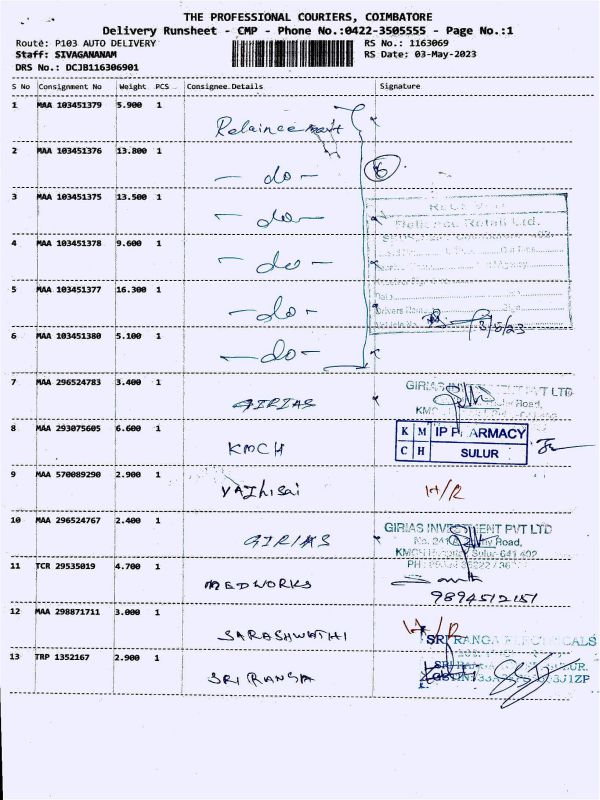 THE PROFESSIONAL COURIERS, COIMBATORE
Delivery Runsheet - CMP - Phone No.:0422-3505555 - Page No.:1
Route: P103 AUTO DELIVERY
RS No.: 1163069
Staff: SIVAGANANAM
RS Date: 03-May-2023
DRS No.: DCJB116306901
S No Consignment No Weight PCS Consignee Details Signature
1 MAA 103451379 5.900 1 Relaince
2 MAA 103451376 13.800 1 - do - 6
3 MAA 103451375 13.500 1 - do -
Reliance Retail Ltd.
4 MAA 103451378 9.600 1 - do -
5 MAA 103451377 16.300 1 - do -
6 MAA 103451380 5.100 1 - do -
7 MAA 296524783 3.400 1 GIRIAS
GIRIAS INVESTMENT PVT LTD
8 MAA 293075605 6.600 1 KMCH
K M C H IP PHARMACY
SULUR
9 MAA 570089290 2.900 1 VAJhisai H/R
10 MAA 296524767 2.400 1 GIRIAS
GIRIAS INVESTMENT PVT LTD
Road,
KMCH Hospital Sulur-641 402
11 TCR 29535019 4.700 1 MEDWORKS
9894512151
12 MAA 298871711 3.000 1 SARASHWATHI H/R
SRI RANGA ELECTRICALS
13 TRP 1352167 2.900 1 SRI RANGA